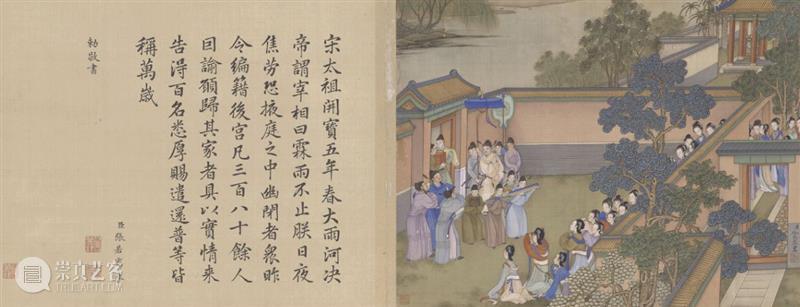 宋太祖開寶五年春大雨河決
帝謂宰相曰霖雨不止朕日夜
焦勞恐掖庭之中幽閉者衆昨
今編籍後宮凡三百八十餘人
囙諭願歸其家者具以實情來
告得百名悉厚賜遣還普等皆
稱萬歲
臣張若
勅敬書
崇真艺客